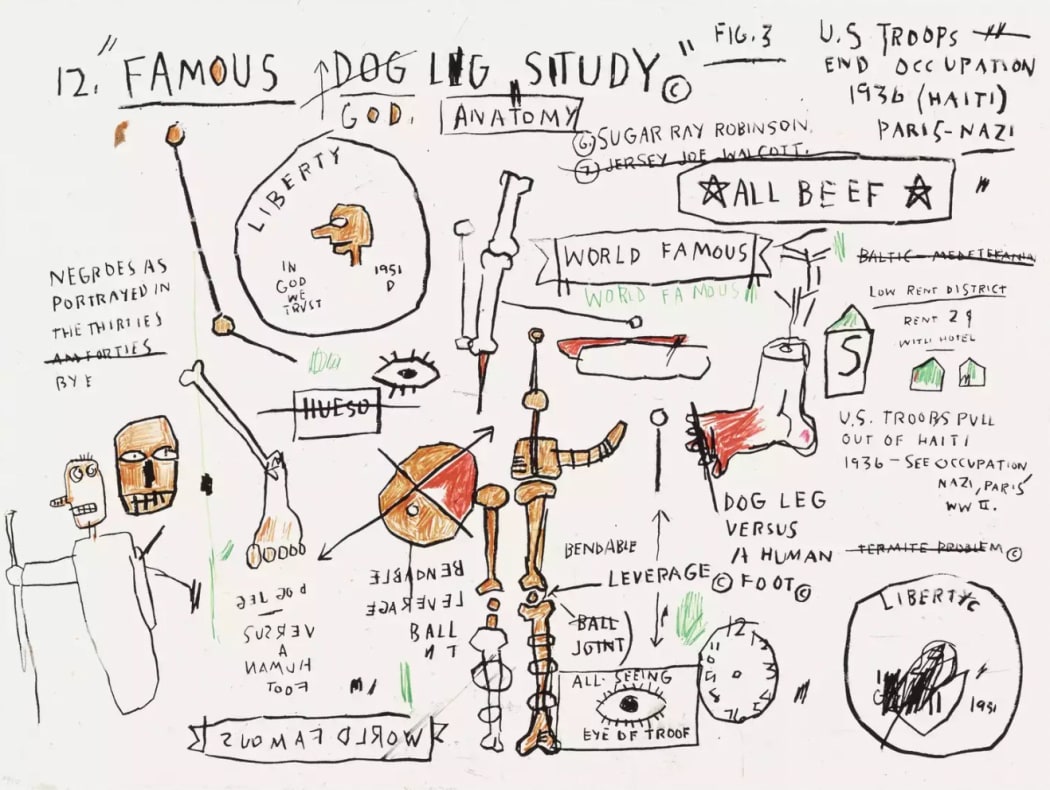 12. "FAMOUS DOG LEG STUDY" ©
GOD.
ANATOMY
FIG. 3
U.S TROOPS
END OCCUPATION
1936 (HAITI)
PARIS-NAZI
6 SUGAR RAY ROBINSON.
7 JERSEY JOE WALCOTT.
ALL BEEF
LIBERTY
IN
GOD
WE
TRUST
1951
D
WORLD FAMOUS
WORLD FAMOUS
BALTIC - MEDETERANIA
LOW RENT DISTRICT
RENT 2¢
WITH HOTEL
S
NEGROES AS
PORTRAYED IN
THE THIRTIES
AM FORTIES
BYE
HUESO
U.S. TROOPS PULL
OUT OF HAITI
1936 - SEE OCCUPATION
NAZI, PARIS
WW II.
DOG LEG
VERSUS
A HUMAN
© FOOT ©
TERMITE PROBLEM ©
BENDABLE
LEVERAGE
BALL
JOINT)
BENDABLE
LEVERAGE
BALL
N T
DOG LEG
VERSUS
A
HUMAN
FOOT
ALL-SEEING
EYE OF TROOF
12
LIBERTY
1951
WORLD FAMOUS